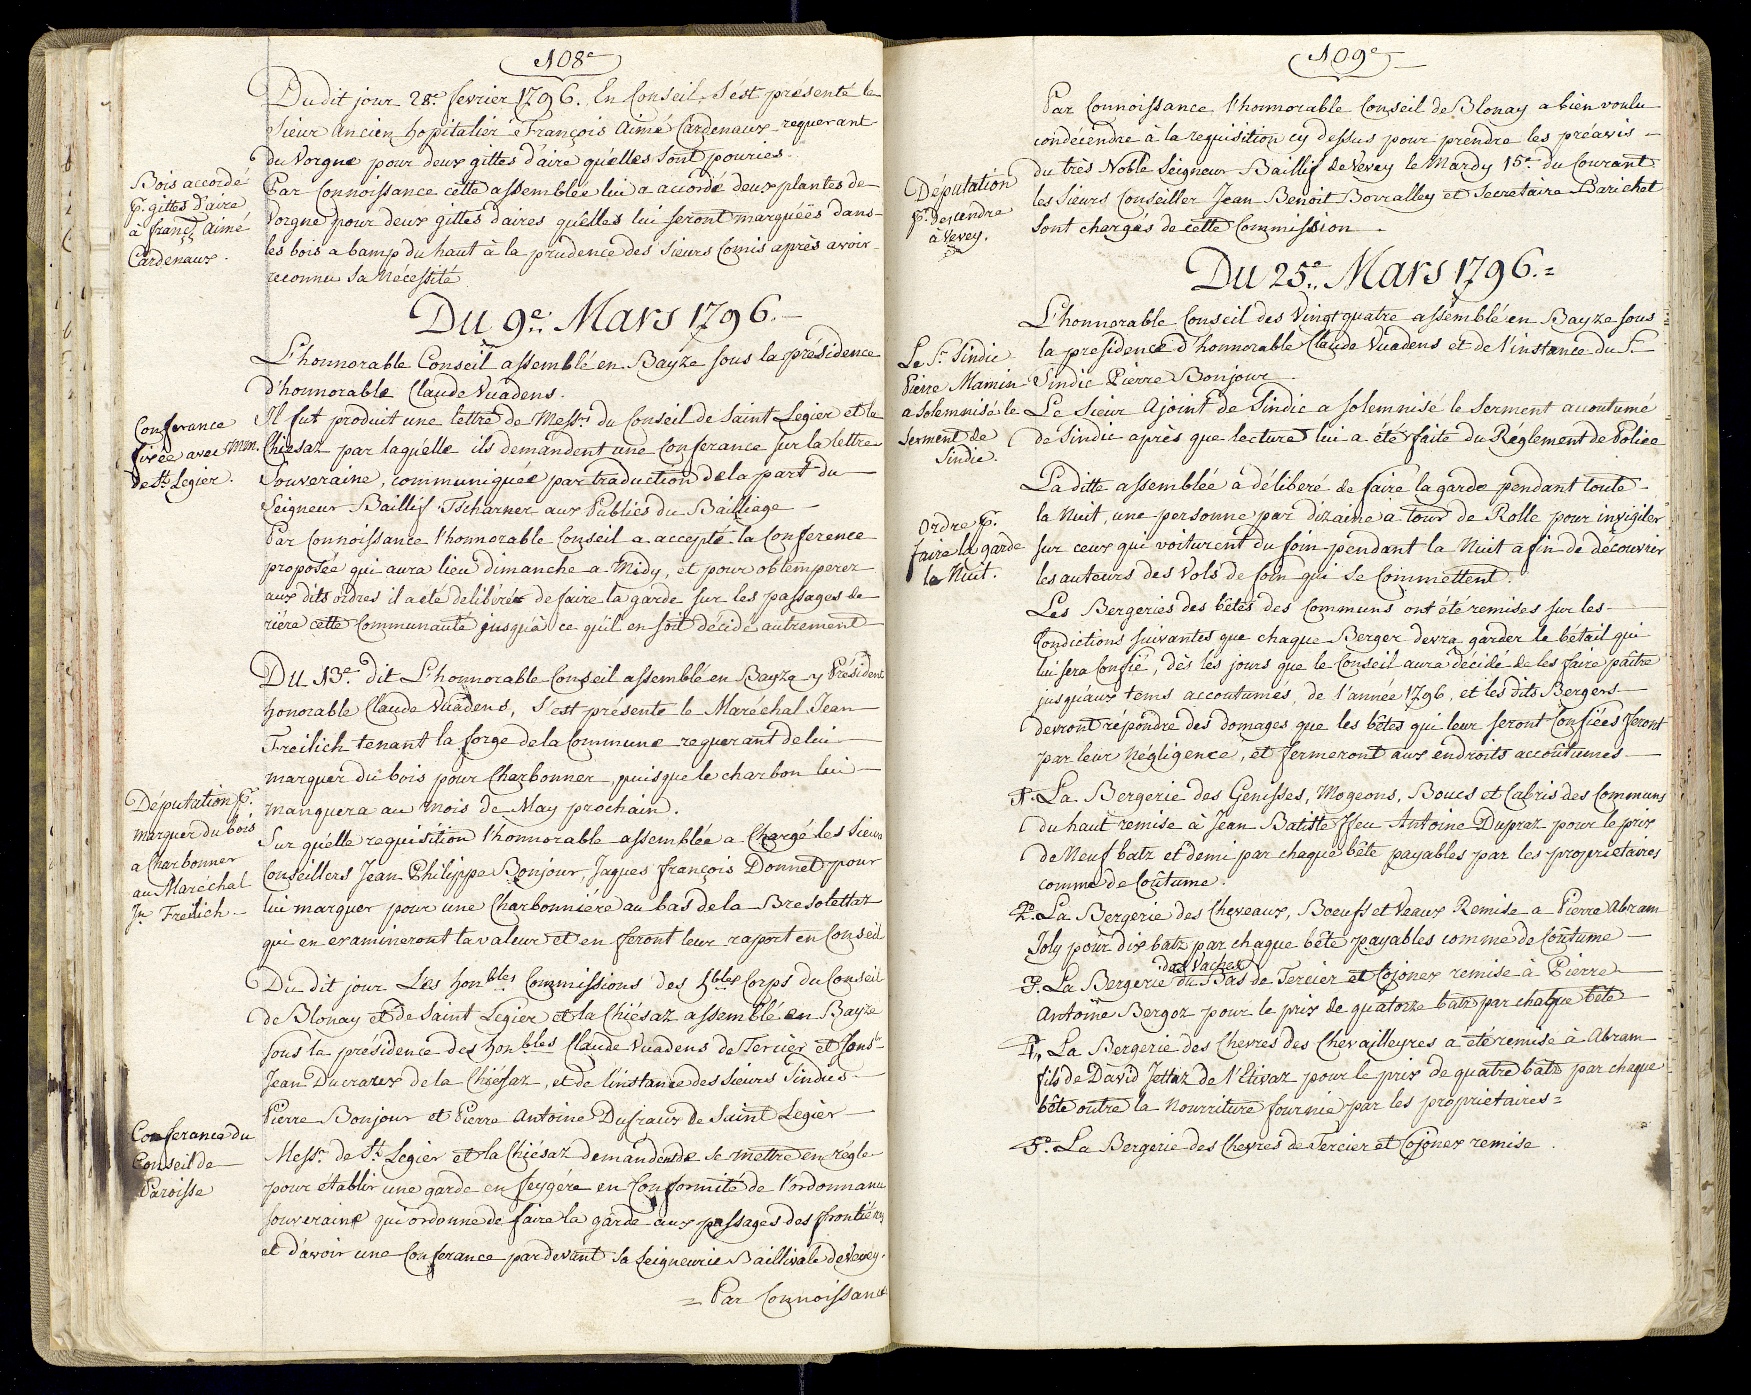 108e
Du dit jour 28e. fevrier 1796. En Conseil, s'est présenté le
Sieur Ancien hopitalier François Aimé Cardenaux requerant
du Vorgne pour deux gittes d'aire qu'elles sont pouries.
Bois accordé
pr. gittes d'aire
à franç. Aimé
Cardenaux.
Par Connoissance cette assemblée lui a accordé deux plantes de
Vorgne pour deux gittes d'aires qu'elles lui seront marquéës dans
les bois a bamp du haut à la prudence des Sieurs Comis après avoir
reconnu sa Necessité
Du 9e. Mars 1796.
L'honnorable Conseil assemblé en Bayze sous la présidence
d'honnorable Claude Vuadens.
Conferance
fixée avec Mrs.
de St. Legier.
Il fut produit une lettre de Messrs. du Conseil de Saint Legier et la
Chiesaz par laquelle ils demandent une Conferance sur la lettre
Souveraine, communiquée par traduction de la part du
Seigneur Baillif Tscharner aux Publics du Bailliage
Par Connoissance l'honnorable Conseil a accepté la Conference
proposée qui aura lieu dimanche a Midy, et pour obtemperer
aux dits ordres il a eté deliberé de faire la garde sur les passages de
riére cette Communauté jusqu'à ce qu'il en soit décidé autrement
Du 13e. dit L'honnorable Conseil assemblé en Bayze y Président
honorable Claude Vuadens, S'est présenté le Maréchal Jean
Freilich tenant la forge de la Commune requerant de lui
marquer du bois pour Charbonner, puisque le charbon lui
manquera au mois de May prochain.
Députation pr.
marquer du bois
a Charbonner
au Maréchal
Jn. Freilich
Sur quélle requisition l'honnorable assemblée a Chargé les Sieurs
Conseillers Jean Philippe Bonjour, Jaques françois Donnet pour
lui marquer pour une Charbonniére au bas de la Bresolettaz
qui en examineront la valeur et en feront leur raport en Conseil
Du dit jour Les honbles Commissions des hbles Corps du Conseil
de Blonay et de Saint Legier et la Chiésaz assemblé en Bayze
sous la présidence des honbles Claude Vuadens de Tercier et
Jean Ducrazex de la Chiésaz, et de l'instance des Sieurs Sindics
Pierre Bonjour et Pierre Antoine Dufraux de Saint Legier
Conferance du
Conseil de
Paroisse
Messrs. de St. Legier et la Chiésaz demandent de se mettre en régle
pour établir une garde en feygére en Conformité de l'ordonnance
souveraine qui ordonne de faire la garde aux passages des frontiéres
et d'avoir une Conferance pardevant sa Seigneurie Baillivale de Vevey.
= Par Connoissance
109e
Par Connoissance l'honnorable Conseil de Blonay a bien voulu
condécendre à la requisition cy dessus pour prendre les préavis
du très Noble Seigneur Baillif de Vevey le Mardy 15e. du Courant
les Sieurs Conseiller Jean Benoit Borralley et Secretaire Barichet
sont chargés de cette Commission.
Députation
pr. descendre
à Vevey.
Du 25e. Mars 1796.=
L'honnorable Conseil des Vingt quatre assemblé en Bayze sous
la presidence d'honnorable Claude Vuadens et de l'instance du Sr.
Sindic Pierre Bonjour
Le Sr. Sindic
Pierre Mamin
a solemnisé le
Serment de
Sindic.
Le Sieur Ajoint de Sindic a solemnisé le Serment accoutumé
de Sindic après que lecture lui a été faite du Réglement de Police
La ditte assemblée a déliberé de faire la garde pendant toute
la Nuit, une personne par dizaine a tour de Rolle pour invigiler
sur ceux qui voiturent du foin pendant la Nuit afin de découvrir
les auteurs des Vols de foin qui se Commettent.
Ordre pr.
faire la garde
la Nuit.
Les Bergeries des bêtes des Communs ont été remises sur les
Condictions suivantes que chaque Berger devra garder le bétail qui
lui sera Confié, dès les jours que le Conseil aura décidé de les faire paître
jusqu'aux tems accoutumés, de l'année 1796, et les dits Bergers
devront répondre des domages que les bêtes qui leur seront Confiées feront
par leur Négligence, et fermeront aux endroits accoûtumés
1º. La Bergerie des Genisses, Mogeons, Boucs et Cabris des Communs
du haut remise à Jean Batiste ffeu Antoine Duprez pour le prix
de Neuf batz et demi par chaque bête payables par les proprietaires
comme de Coûtume.
2º. La Bergerie des Cheveaux, Boeufs et Veaux Remise a Pierre Abram
Joly pour dix batz par chaque bête payables comme de Coûtume
des Vaches
3º. La Bergerie du Bas de Tercier et Cojonex remise à Pierre
Antoine Bergoz pour le prix de quatorze batz par chaque bête
4º. La Bergerie des Chevres des Chevailleyres a eté remise à Abram
fils de David Jettaz de l'Etivaz pour le prix de quatre batz par chaque
bête outre la Nourriture fournie par les proprietaires=
5º. La Bergerie des Chevres de Tercier et Cojonex remise